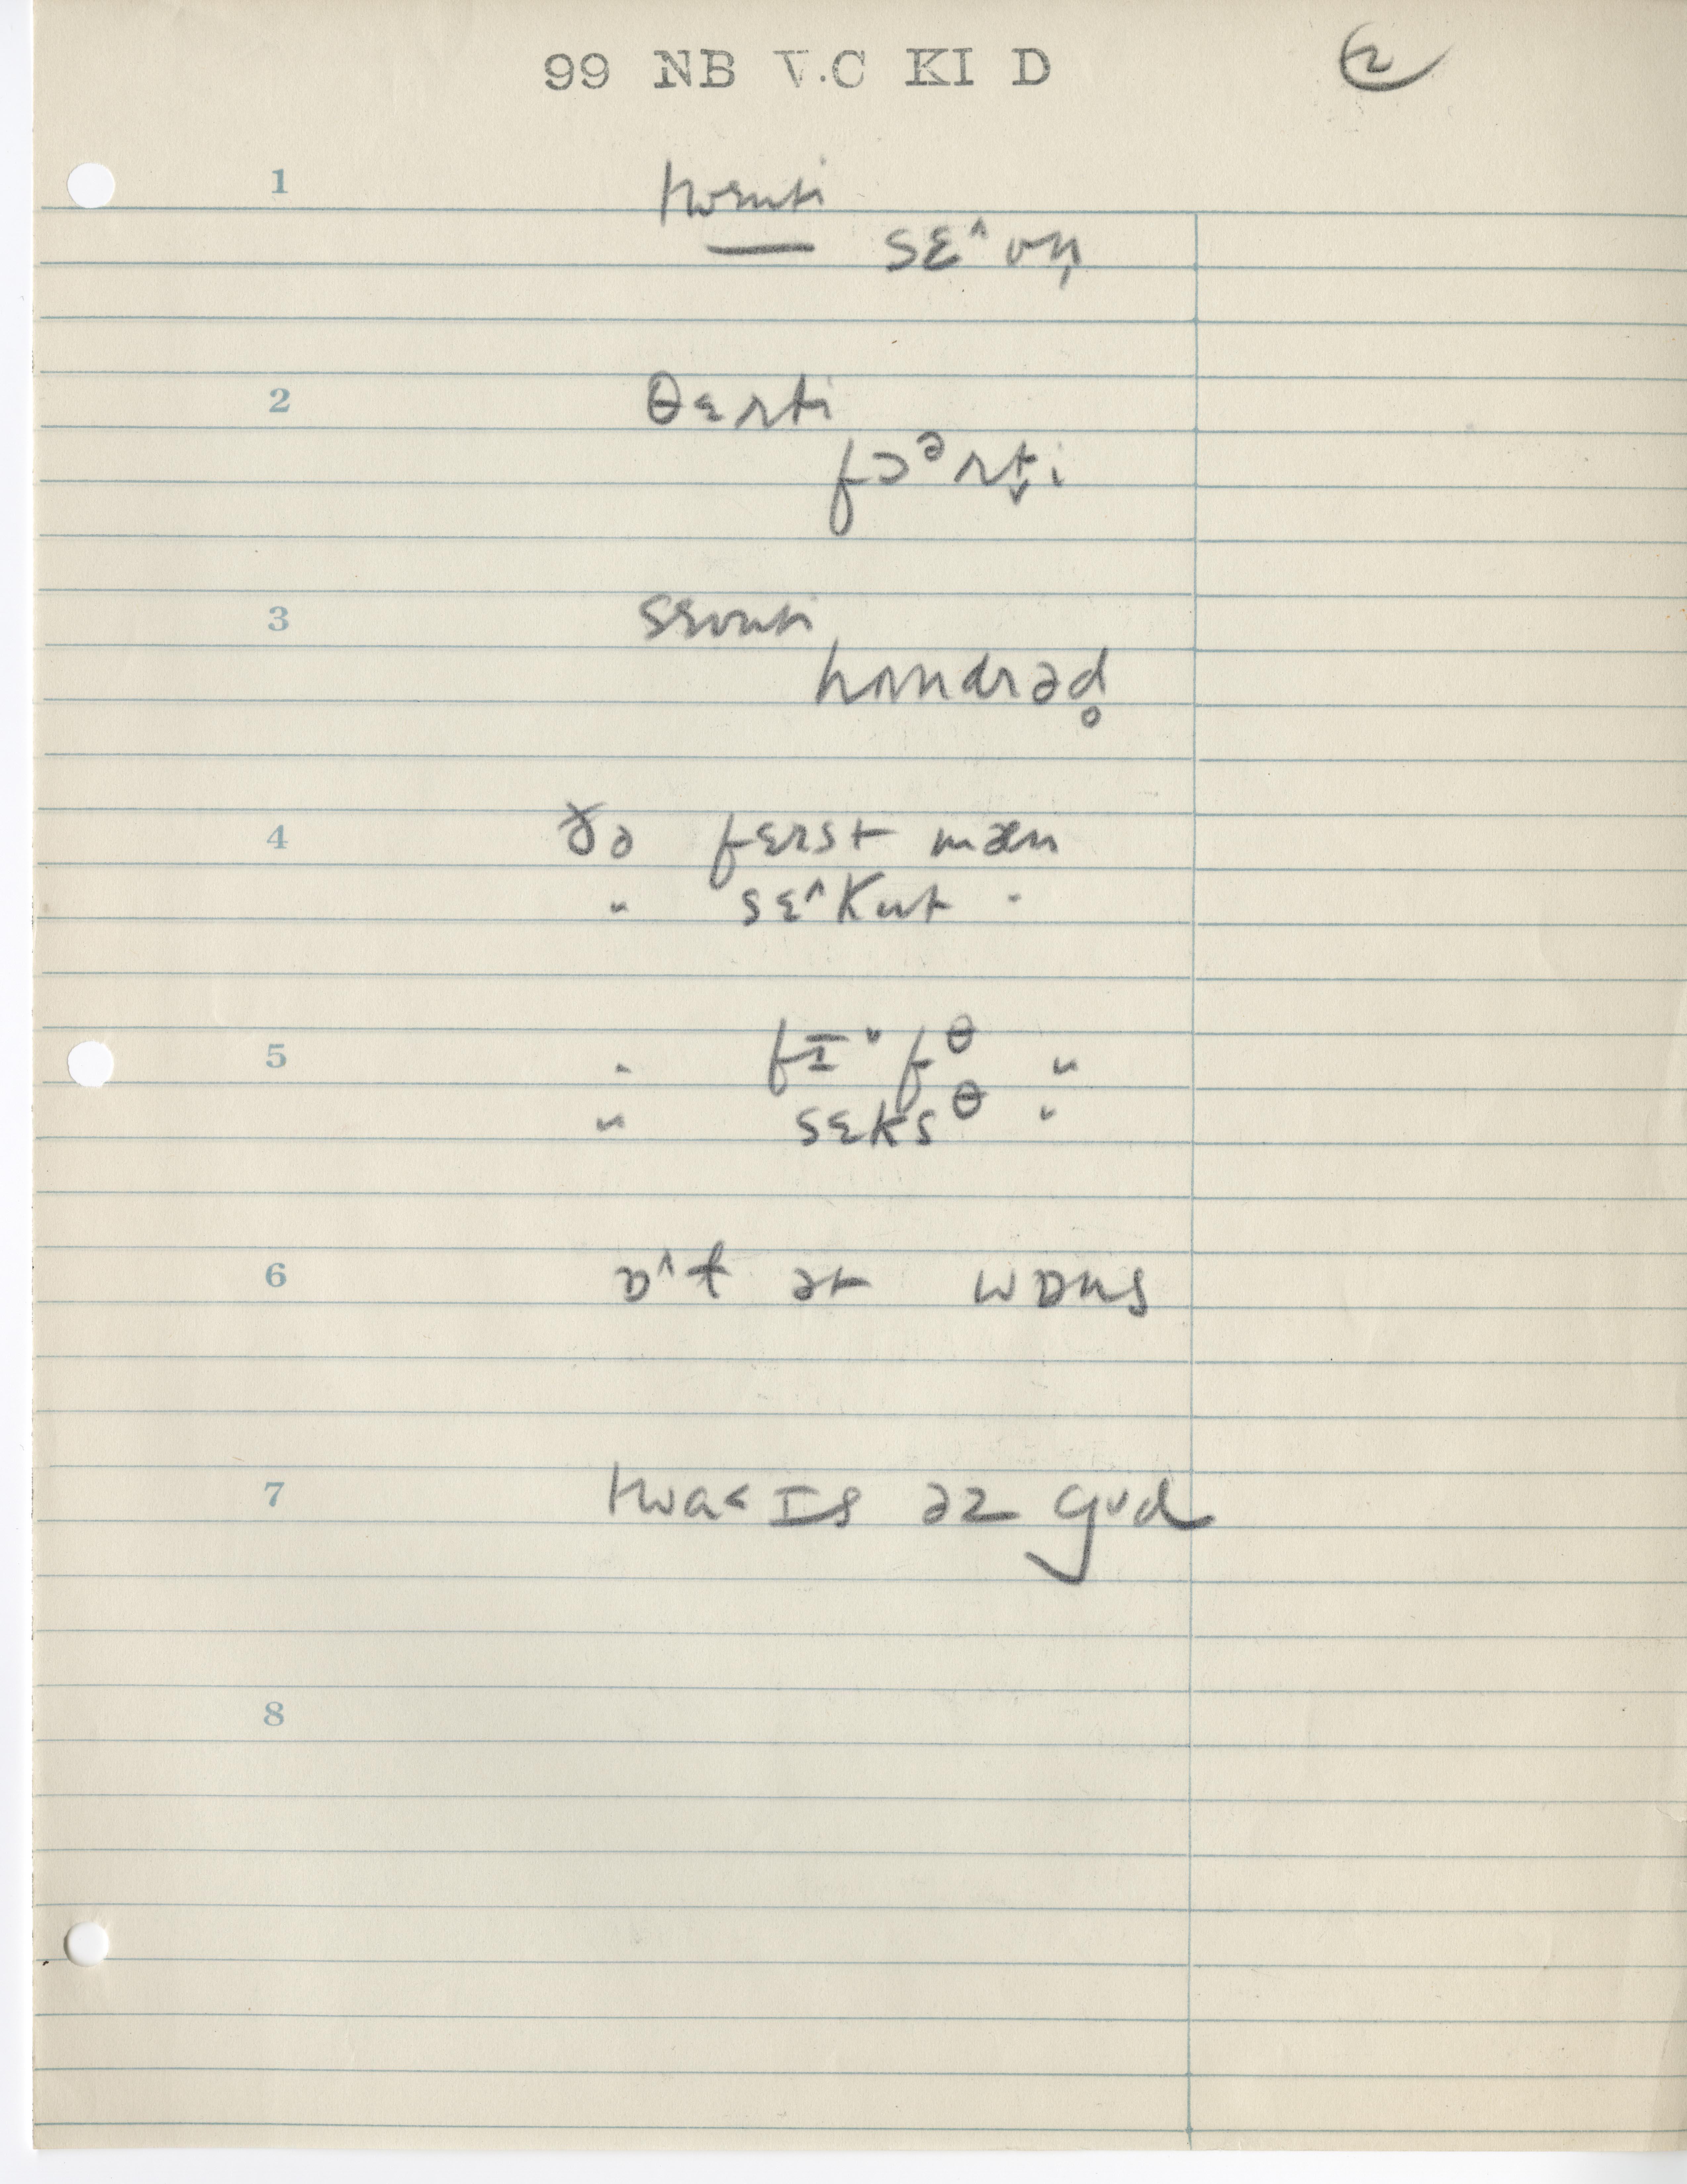 99 NB V.C KI D ②
1 twɛnti
— sɛ^vn̩
2 θɜrti
fɔᵊrt̬i
3 sɛvnti
hʌndrəd̥
4 ðə fɜrst mæn
" sɛ^knt "
5 " fɪ˅fᶿ "
" sɛksᶿ "
6 ɒ^ɫ ət wɒns
7 twɑ˂ɪs əz gʊd
8